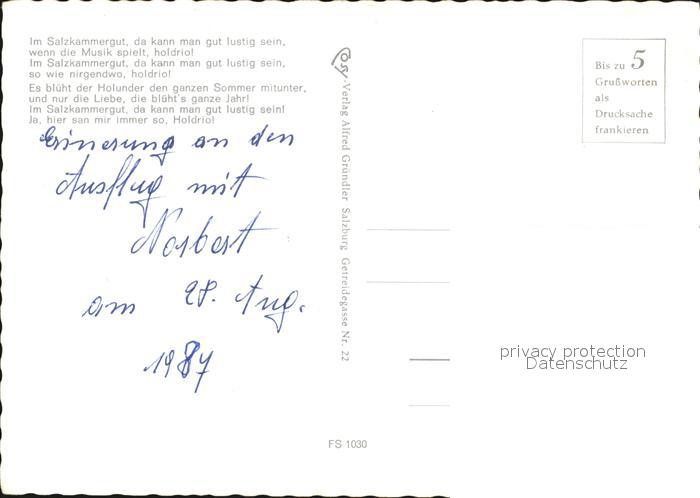 Im Salzkammergut, da kann man gut lustig sein,
wenn die Musik spielt, holdrio!
Im Salzkammergut, da kann man gut lustig sein,
so wie nirgendwo, holdrio!
Es blüht der Holunder den ganzen Sommer mitunter,
und nur die Liebe, die blüht's ganze Jahr!
Im Salzkammergut, da kann man gut lustig sein!
Ja, hier san mir immer so, Holdrio!
Erinerung an den
Ausflug mit
Norbert
am 28. Aug.
1987
Cosy-Verlag Alfred Gründler Salzburg Getreidegasse Nr. 22
Bis zu 5
Grußworten
als
Drucksache
frankieren
privacy protection
Datenschutz
FS 1030